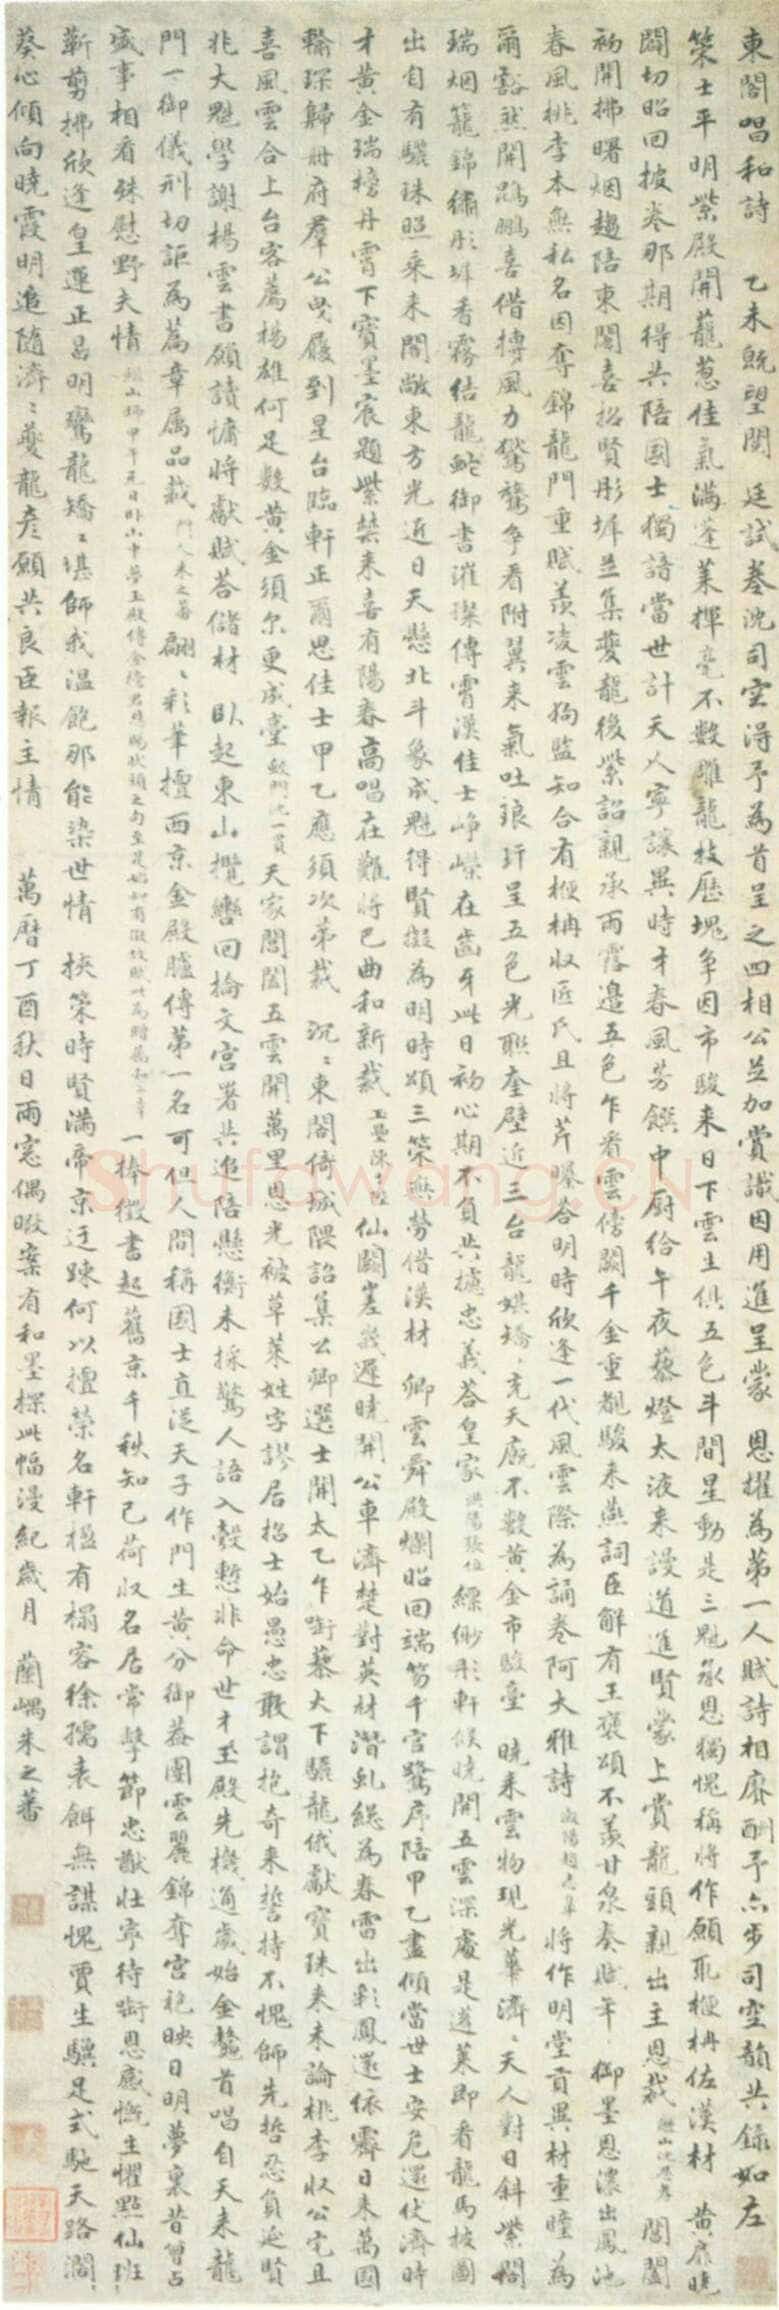 東閣唱和詩　乙未既望閱　廷試卷沈司空得予為首呈之四相公並加賞識因用進呈蒙　恩擢為第一人賦詩相賡酬予亦步司空韻共錄如左
策士平明紫殿開蘢蔥佳氣滿蓬萊揮毫不數雕龍技歷塊爭因市駿來日下雲生俱五色斗間星動是三魁承恩獨愧稱將作願取楩枏佐漢材　黃扉曉
闢切昭回披卷那期得共陪國士獨語當世計天人寧讓異時才春風芳饌中廚給午夜藜燈太液來謾道進賢蒙上賞龍頭親出主恩裁　閶闔
初開拂曙烟趨陪東閣喜招賢彤墀並集夔龍後紫詔親承雨露邊五色乍看雲傍闕千金重覩駿來燕詞臣解有王褒頌不羨甘泉奏賦年　御墨恩濃出鳳池
春風桃李本無私名因奪錦龍門重賦羨凌雲狗監知合有楩枏收匠氏且將芹曝答明時欣逢一代風雲際為誦卷阿大雅詩　將作明堂貢異材重瞳為
爾豁然開鵾鵬喜借摶風力鶖鶿爭看附翼來氣吐琅玕呈五色光聯奎壁近三台龍媒矯矯充天廐不數黃金市駿臺　曉來雲物現光華濟濟天人對日斜紫閣
瑞烟籠錦繡彤墀香霧結龍蛇御書漼璨傳霄漢佳士崢嶸在齒牙此日初心期不負共攄忠義答皇家　洪陽張位　縹緲彤軒候曉開五雲深處是蓬萊即看龍馬披圖
出自有驪珠照乘來閣敞東方光近日天懸北斗象成魁得賢擬為明時頌三策無勞借漢材　卿雲舜殿爛昭回端笏千官鷺序陪甲乙盡傾當世士安危還仗濟時
才黃金瑞榜丹霄下寶墨宸題紫禁來喜有陽春高唱在難將巴曲和新裁　仙闕嵳峩遲曉開公車濟楚對英材潛虬總為春雷出彩鳳還依霽日來萬國
輸琛歸冊府羣公曳履到星台臨軒正爾思佳士甲乙應須次第裁　沉沉東閣倚城隈詔集公卿選士開太乙乍啣藜火下驪龍俄獻寶珠來未論桃李收公宅且
喜風雲合上台客薦楊雄何足數黃金須尔更成臺　天家閶闔五雲開萬里恩光被草萊姓字謬居招士始愚忠敢謂抱奇來誓持不愧師先哲忍負延賢
兆大魁學謝楊雲書願讀慵將獻賦荅儲材　臥起東山攬轡回掄文宮署共追陪懸衡未採驚人語入彀慙非命世才玉殿先機通歲始金鰲首唱自天來龍
門一御儀刑切詎為篇章屬品裁　門人朱之蕃　翩翩彩筆擅西京金殿臚傳第一名可但人間稱國士直從天子作門生黃分御蓋團雲麗錦奪宮袍映日明夢裏昔曾占
盛事相看殊慰野夫情　一捧徵書起舊京千秋知己荷收名居常擊節忠猷壯寧待銜恩感慨生懼點仙班
靳剪拂欣逢皇運正昌明鸞龍矯矯堪師我溫飽那能染世情　挾策時賢滿帝京迂踈何以擅榮名軒楹有榻容徐孺表餌無謀愧賈生驥足式馳天路濶
葵心傾向曉霞明追隨濟濟夔龍彥願共良臣報主情　萬曆丁酉秋日雨窓偶暇案有和墨探此幅漫紀歲月　蘭嵎朱之蕃
Shufawang.CN